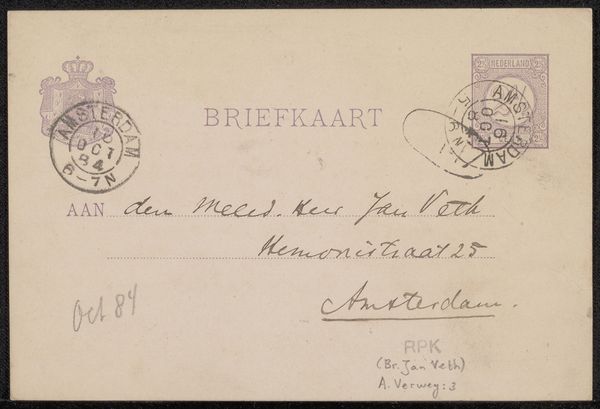 NEDERLAND
2½ 2½
BRIEFKAART
AMSTERDAM
OCT
84
6-7N
AMSTERDAM
16
OCT
AAN den Weled. Heer Jan Veth
Hemonistraat 25
Amsterdam.
Oct 84
RPK
(Br. Jan Veth)
A. Verwey: 3